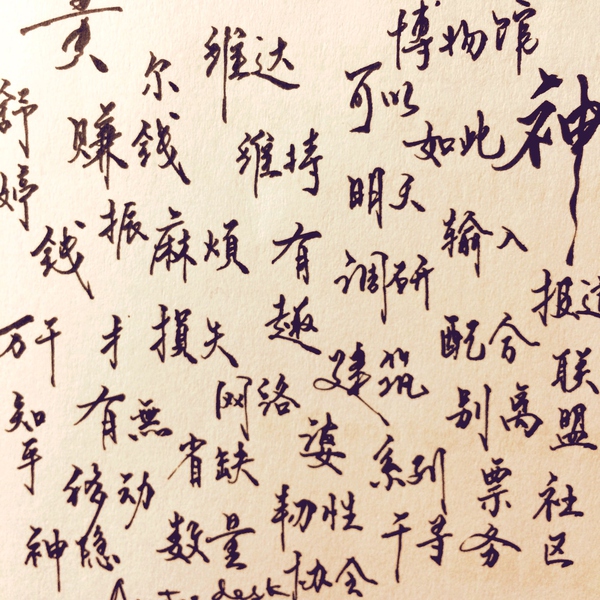 博物馆
维达
尔
可以
如此
神
舒婷
赚钱
维持
明天
钱
振
麻烦
有趣
输入
调研
报道
万千
才
损失
配合
建筑
联盟
知乎
有無
网络
别离
省缺
婆
系列
票务
移动
社区
神隐
数量
韧性
千寻
协会